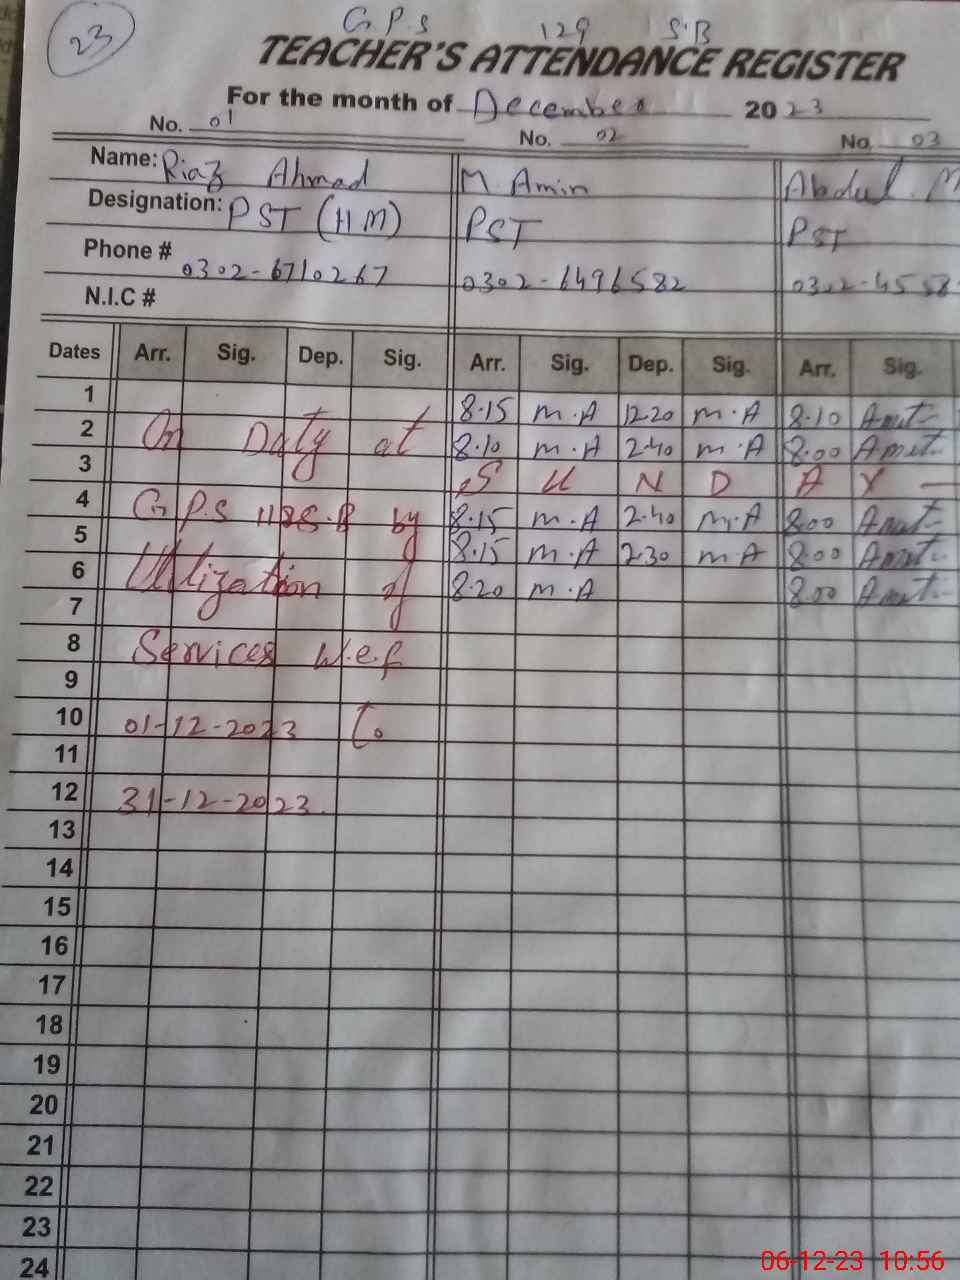 23
G.P.S 129 S.B
TEACHER'S ATTENDANCE REGISTER
For the month of December 2023
No. 01 No. 02 No. 03
Name: Riaz Ahmad M. Amin Abdul. M
Designation: PST (HM) PST PST
Phone # 0302-6710267 0302-6496582 0302-4558
N.I.C #
Dates Arr. Sig. Dep. Sig. Arr. Sig. Dep. Sig. Arr. Sig.
1 8.15 M.A 12.20 M.A 8.10
2 On Duty at 8.10 M.A 2.40 M.A 8.00
3 S U N D A Y
4 G.P.S 118 S.B by 8.15 M.A 2.40 M.A 8.00
5 8.15 M.A 2.30 M.A 8.00
6 Utilization of 8.20 M.A 8.00
7
8 Services W.e.f
9
10 01-12-2023 To
11
12 31-12-2023.
13
14
15
16
17
18
19
20
21
22
23
24
06-12-23 10:56